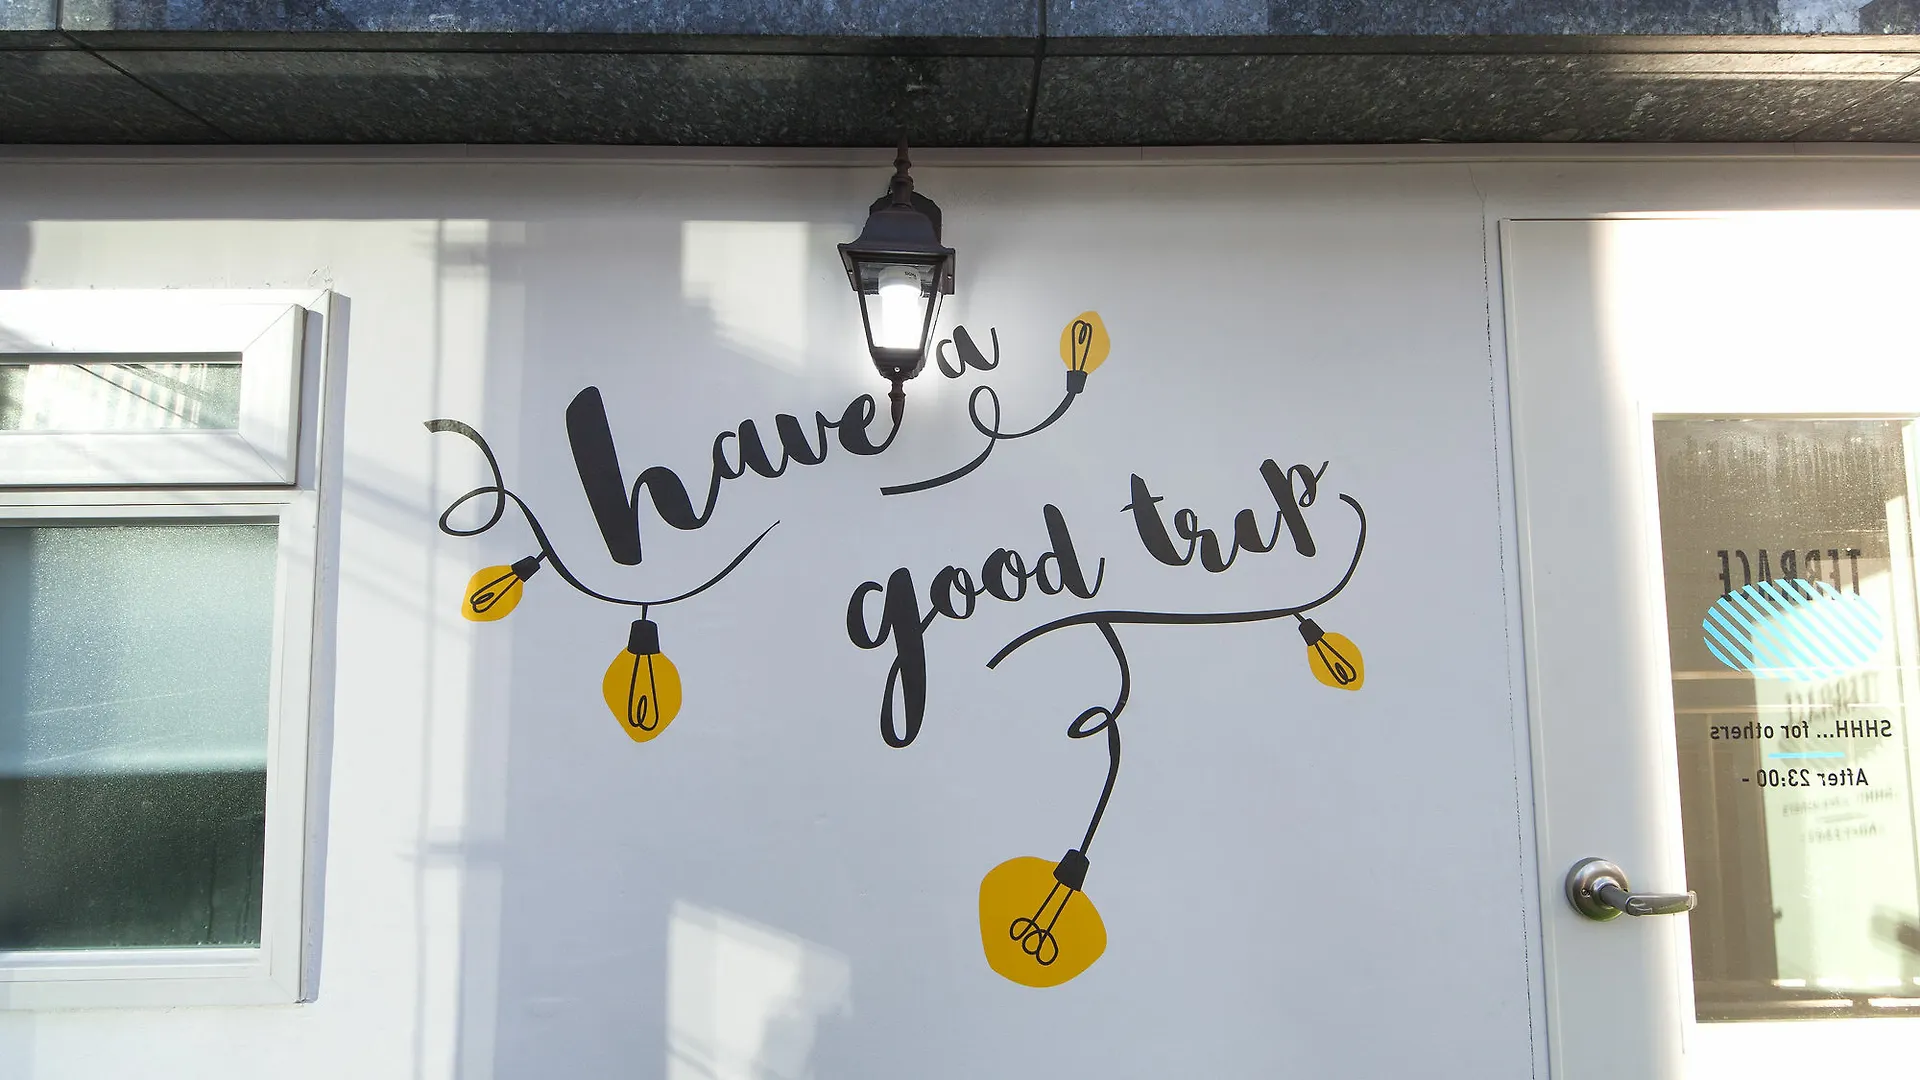 have a
good trip
TERRACE
SHHH... for others
After 23:00 -